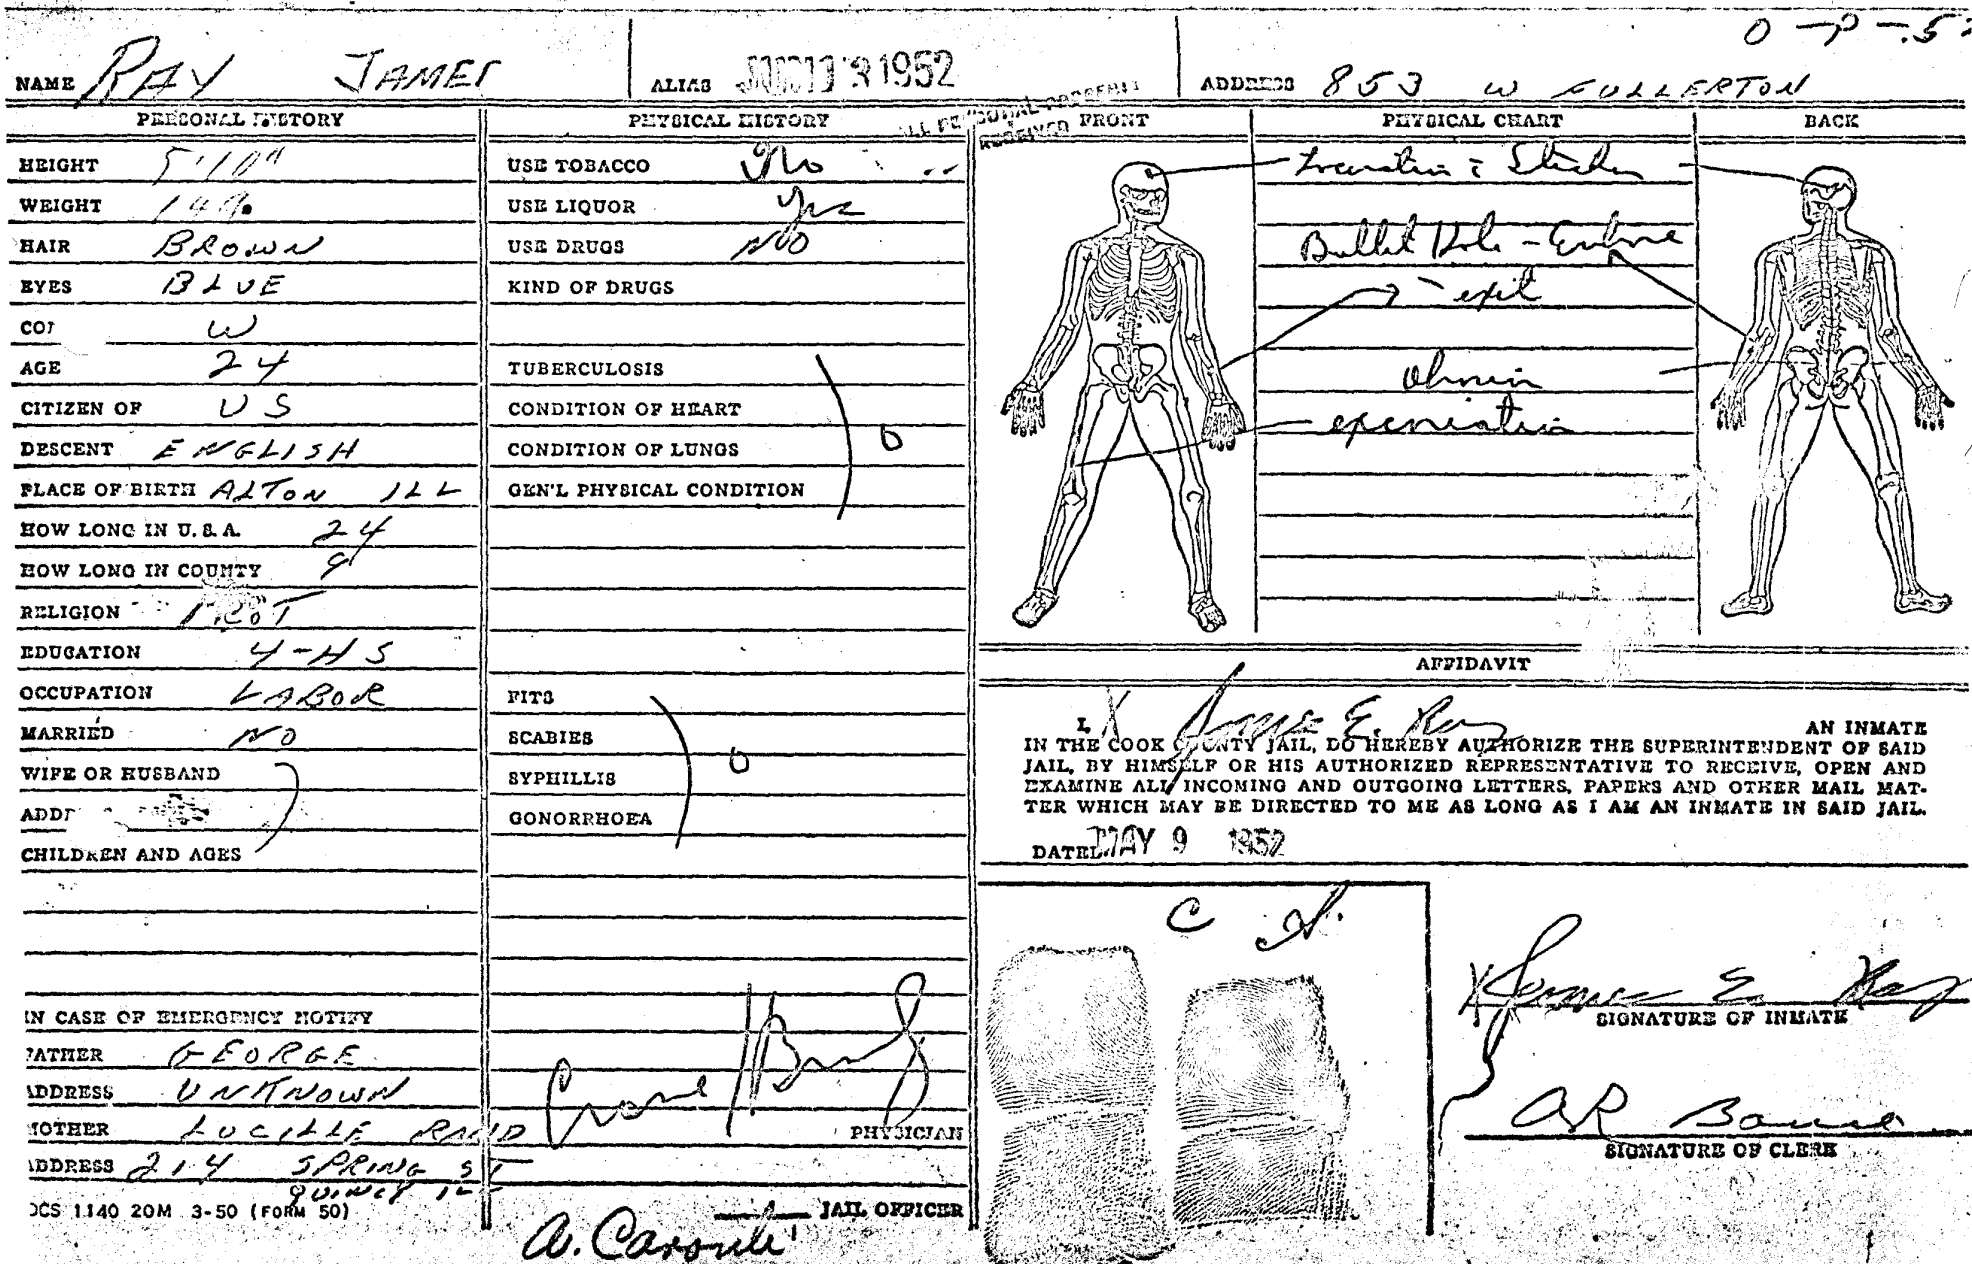 NAME RAY JAMES ALIAS 1952 ADDRESS 853 W FULLERTON
ALL PERSONAL PROPERTY
RECEIVED
PERSONAL HISTORY PHYSICAL HISTORY FRONT PHYSICAL CHART BACK
HEIGHT 5'10"
WEIGHT
HAIR BROWN
EYES BLUE
W
AGE 24
CITIZEN OF US
DESCENT ENGLISH
PLACE OF BIRTH ALTON ILL
HOW LONG IN U.S.A. 24
HOW LONG IN COUNTY
RELIGION PROT
EDUCATION 4-HS
OCCUPATION LABOR
MARRIED NO
WIFE OR HUSBAND
CHILDREN AND AGES
IN CASE OF EMERGENCY NOTIFY
FATHER GEORGE
ADDRESS UNKNOWN
MOTHER LUCILLE
ADDRESS 214 SPRING ST
QUINCY ILL
OCS 1140 20M 3-50 (FORM 50)
USE TOBACCO No
USE LIQUOR Yes
USE DRUGS NO
KIND OF DRUGS
TUBERCULOSIS
CONDITION OF HEART
CONDITION OF LUNGS 0
GEN'L PHYSICAL CONDITION
FITS
SCABIES
SYPHILLIS 0
GONORRHOEA
PHYSICIAN
JAIL OFFICER
Bullet Hole -
- exit
AFFIDAVIT
I, X James E. Ray AN INMATE
IN THE COOK COUNTY JAIL, DO HEREBY AUTHORIZE THE SUPERINTENDENT OF SAID
JAIL, BY HIMSELF OR HIS AUTHORIZED REPRESENTATIVE TO RECEIVE, OPEN AND
EXAMINE ALL INCOMING AND OUTGOING LETTERS, PAPERS AND OTHER MAIL MAT-
TER WHICH MAY BE DIRECTED TO ME AS LONG AS I AM AN INMATE IN SAID JAIL.
DATED MAY 9 1952
X James E. Ray
SIGNATURE OF INMATE
SIGNATURE OF CLERK